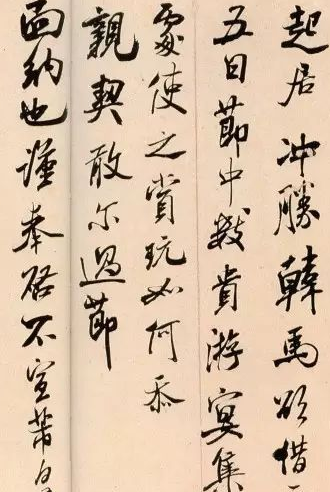 起居冲勝韓馬欲借
五日節中數貴游宴集
處使之賞玩如何忝
親契敢尔過節
面納也謹奉啓不宣